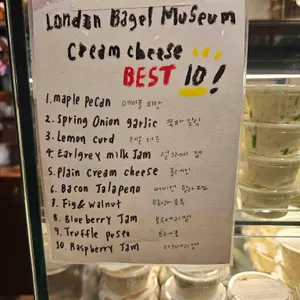 London Bagel Museum
Cream cheese
BEST 10!
1. maple pecan 메이플 피칸
2. Spring Onion garlic 쪽파 갈릭
3. Lemon curd 레몬 커드
4. Earlgrey milk Jam 얼그레이 잼
5. Plain cream cheese 플레인
6. Bacon Jalapeno 베이컨 할라피뇨
7. Fig & walnut 무화과 호두
8. Blueberry Jam 블루베리잼
9. Truffle pesto 트러플
10. Raspberry Jam 라즈베리잼